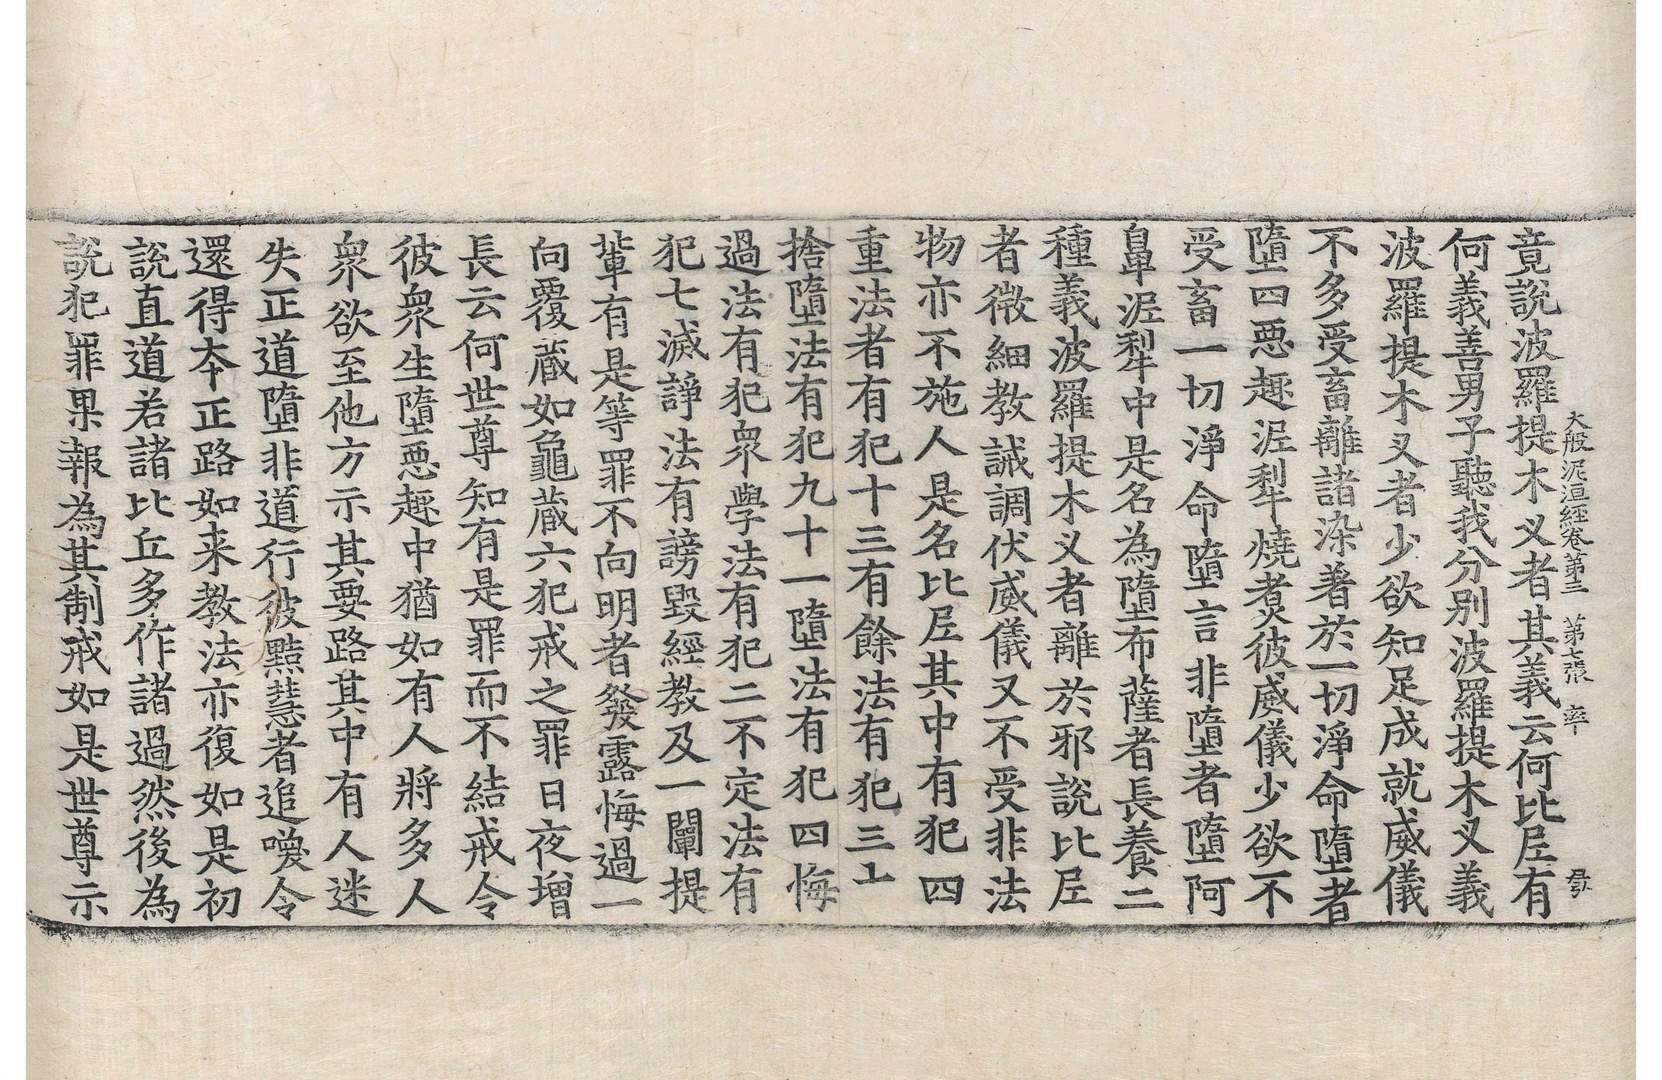 大般泥洹經卷第三　第七張　率
竟說波羅提木叉者其義云何比𡰱有
何義善男子聽我分別波羅提木叉義
波羅提木叉者少欲知足成就威儀
不多受畜離諸染著於一切淨命墮者
墮四惡趣泥犁燒煮彼威儀少欲不
受畜一切淨命墮言非墮者墮阿
鼻泥犁中是名為墮布薩者長養二
種義波羅提木叉者離於邪說比𡰱
者微細教誡調伏威儀又不受非法
物亦不施人是名比𡰱其中有犯四
重法者有犯十三有餘法有犯三十
捨墮法有犯九十一墮法有犯四悔
過法有犯衆學法有犯二不定法有
犯七滅諍法有謗毀經教及一闡提
輩有是等罪不向明者發露悔過一
向覆蔵如龜蔵六犯戒之罪日夜增
長云何世尊知有是罪而不結戒令
彼衆生墮惡趣中猶如有人將多人
衆欲至他方示其要路其中有人迷
失正道墮非道行彼黠慧者追喚令
還得夲正路如来教法亦復如是初
說直道若諸比丘多作諸過然後為
說犯罪果報為其制戒如是世尊示